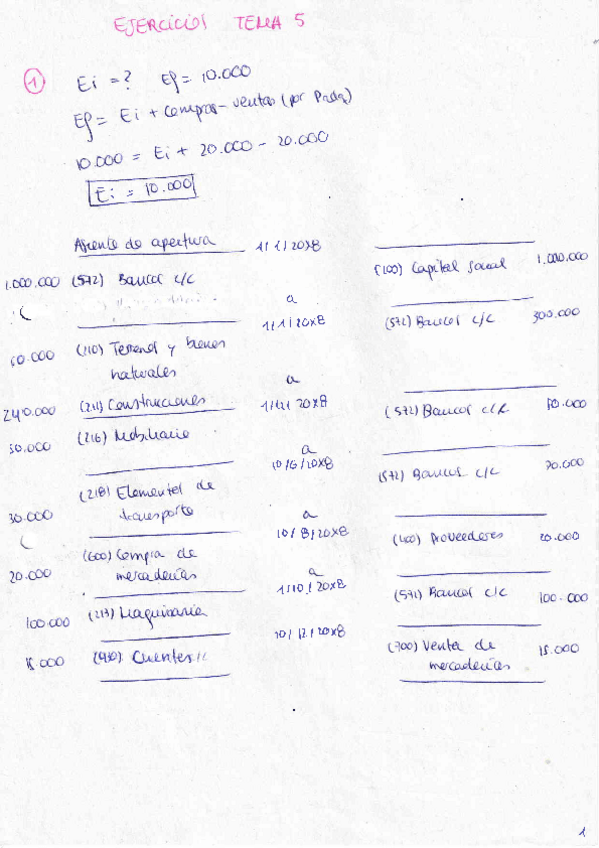 EJERCICIOS TEMA 5
1 Ei = ? Ef = 10.000
Ef = Ei + Compras - ventas (por
10.000 = Ei + 20.000 - 20.000
Ei = 10.000
Asiento de apertura 1/1/20X8
1.000.000 (572) Bancos c/c (100) Capital social 1.000.000
a
1/1/20X8 (572) Bancos c/c 300.000
60.000 (210) Terrenos y bienes
naturales
a
240.000 (211) Construcciones 20X8 (572) Bancos c/c
50.000 (216) Mobiliario
a
10/6/20X8 (572) Bancos c/c
30.000 (218) Elementos de
transporte
a
10/8/20X8 (400) Proveedores 20.000
20.000 (600) Compra de
mercaderías
a
1/10/20X8 Bancos c/c 100.000
100.000 Maquinaria
10/12/20X8 (700) Ventas de 15.000
mercaderías
(430) Clientes
1